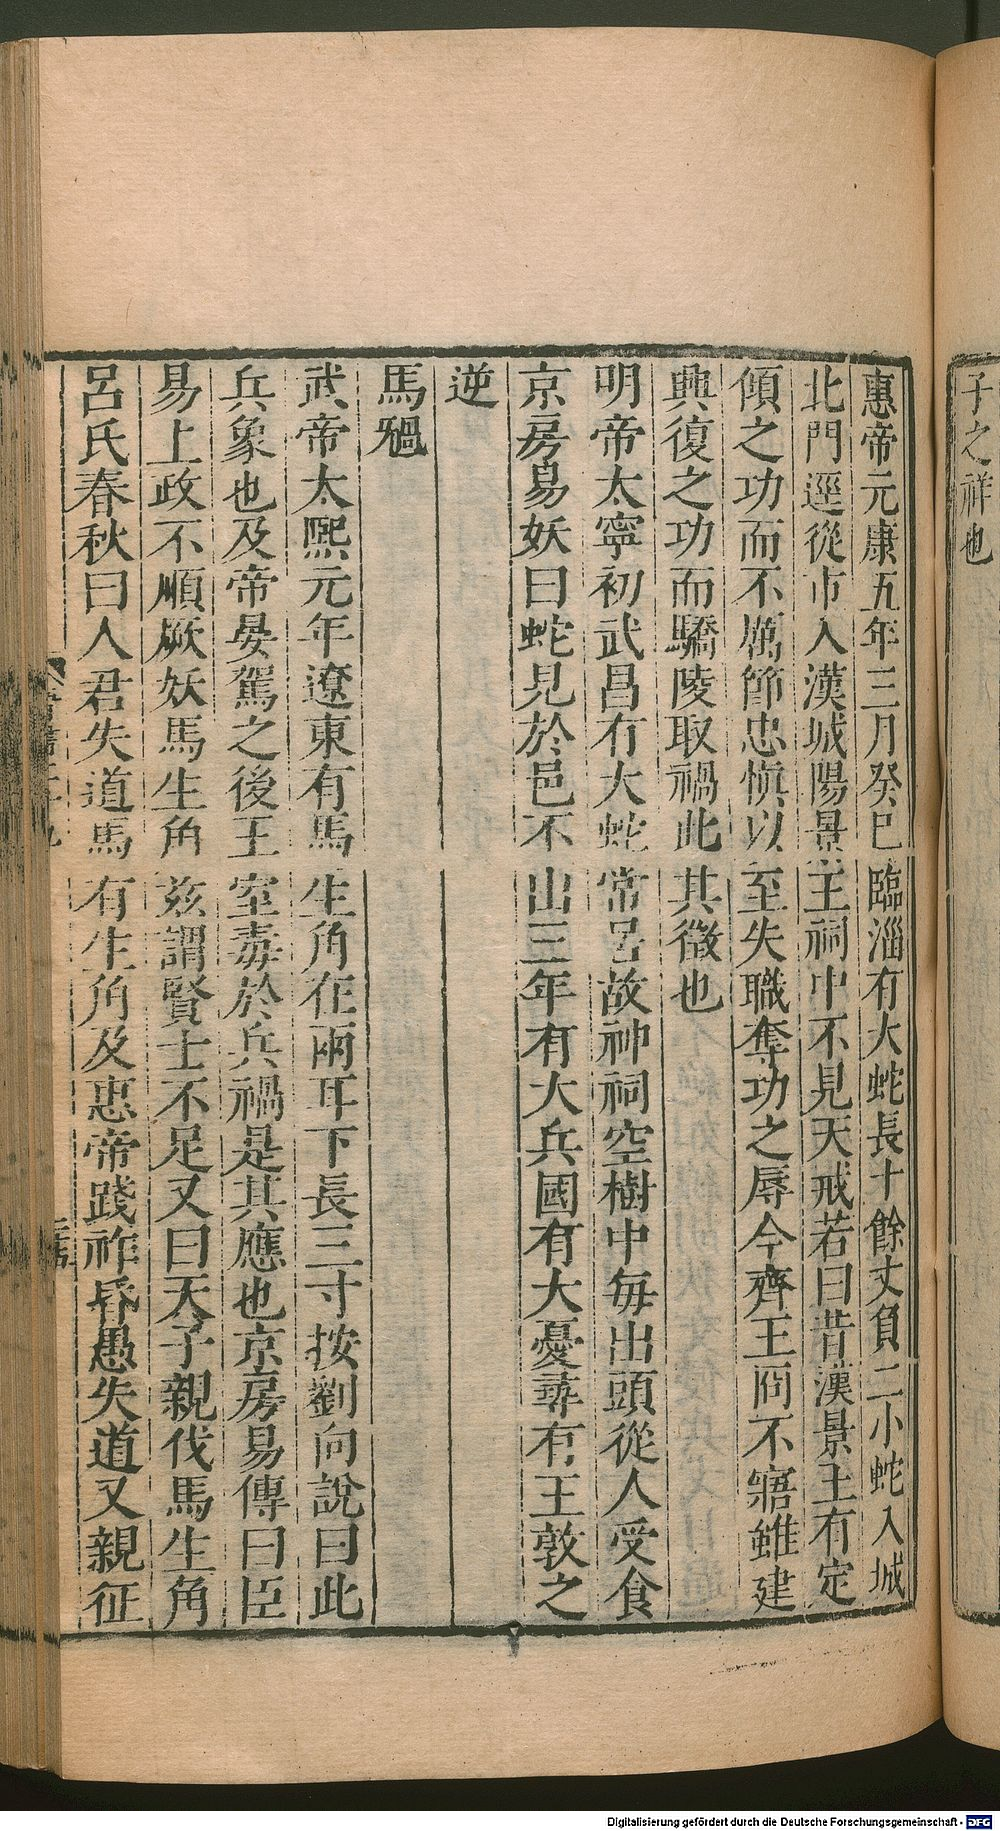 子之祥也
惠帝元康五年三月癸巳臨淄有大蛇長十餘丈負二小蛇入城
北門逕從市入漢城陽景王祠中不見天戒若曰昔漢景王有定
傾之功而不厲節忠愼以至失職奪功之辱今齊王冏不寤雖建
興復之功而驕陵取禍此其徵也
明帝太寧初武昌有大蛇常居故神祠空樹中每出頭從人受食
京房易妖曰蛇見於邑不出三年有大兵國有大憂尋有王敦之
逆
馬禍
武帝太熙元年遼東有馬生角在兩耳下長三寸按劉向說曰此
兵象也及帝晏駕之後王室毒於兵禍是其應也京房易傳曰臣
易上政不順厥妖馬生角茲謂賢士不足又曰天子親伐馬生角
呂氏春秋曰人君失道馬有生角及惠帝踐祚昏愚失道又親征
Digitalisierung gefördert durch die Deutsche Forschungsgemeinschaft - DFG